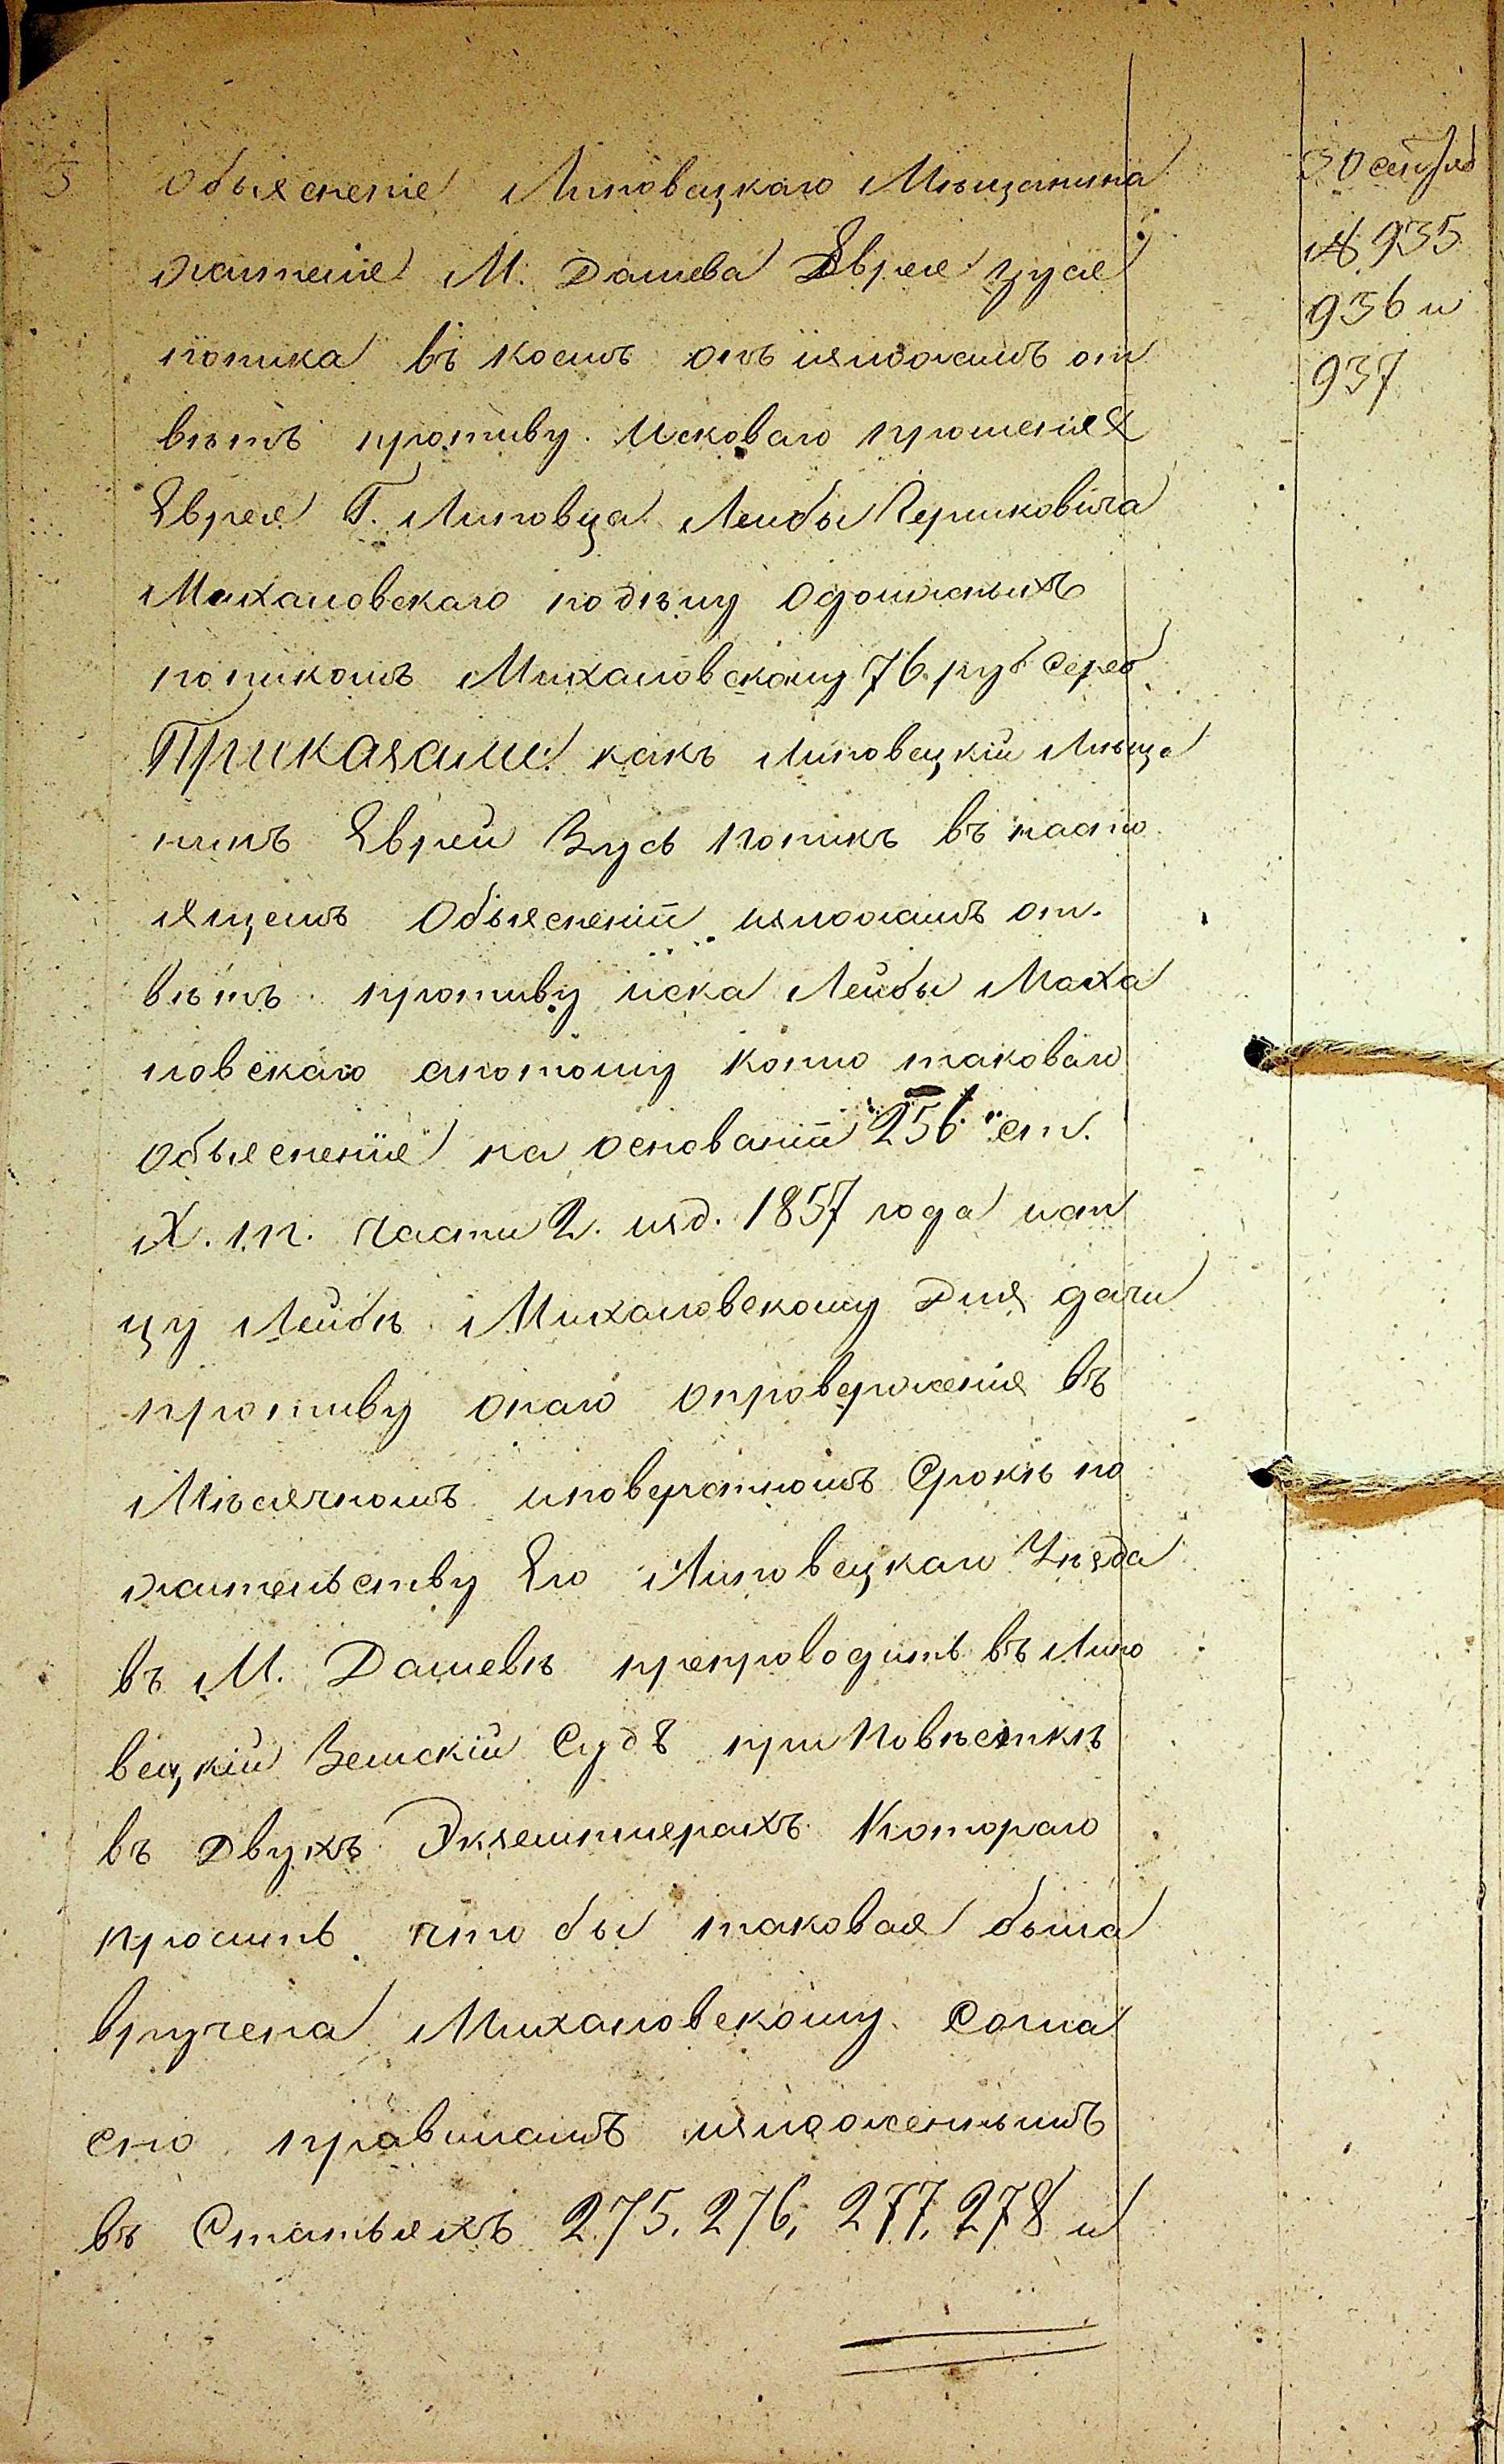 5
Объясненіе Липовецкаго Мѣщанина
жителя М. Дашева Еврея Зуся
попика въ коемъ онъ изложилъ от
вѣтъ противу Исковаго прошенія
Еврея Г. Липовца Лейбы Гершковича
Михаловскаго подѣлу Одолженныхъ
попикомъ Михаловскому 76 руб Сереб
Приказали: какъ Липовецкій Мѣща
нинъ Еврей Зусь попикъ въ насто
ящемъ Объясненіи изложилъ от.
вѣтъ противу иска Лейбы Маха
ловскаго апотому копію таковаго
объясненія на основаніи 256 ст.
X. т. Части 2. изд. 1857 года ист
цу Лейбѣ Михаловскому Для дачи
противу онаго опроверженія въ
Мѣсячномъ иповерстномъ Срокѣ по
жительству Его Липовецкаго Уѣзда
въ М. Дашевѣ препроводить въ Липо
вецкій Земскій Судъ при Повѣсткѣ
въ Двухъ Экземплерахъ Котораго
просить что бы таковая была
вручена Михаловскому Согла
сно правиламъ изложеннымъ
въ Статьяхъ 275, 276, 277, 278 и
№ 935
936 и
937